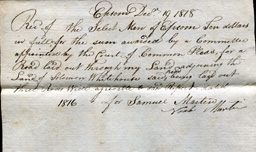 Epsom Decr 19 1818
Recd of the Select Men of Epsom Ten dollars
in full for the sum awarded by a Committee
appointed by the Court of Common Pleas for a
Road laid out through my Land adjoining the
Land of Solomon Whitehouse said road being laid out
1816 for Samuel